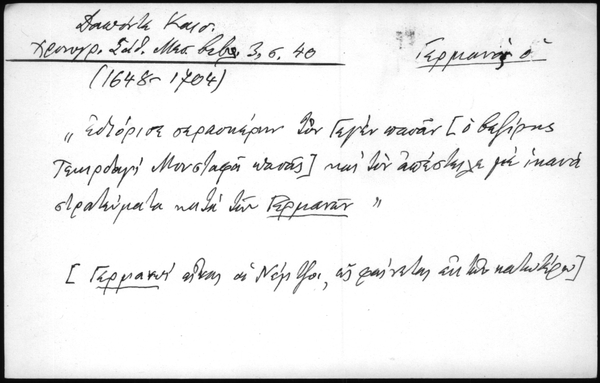 Δαπόντε Καισ.
Χρονογρ. Σάθ. Μεσ. βιβλ. 3, σ. 40
Γερμανός ὁ
(1648-1704)
„ Ἐδιόρισε σερασκέρην τὸν Γεγέν πασᾶν [ὁ βεζίρης
Τεκιρδαγί Μουσταφᾶ πασᾶς] καὶ τὸν ἀπέστειλε μέ ἱκανά
στρατεύματα κατά τῶν Γερμανῶν "
[Γερμανοί εἶναι οἱ Νέμτζοι, ὡς φαίνεται ἐκ τῶν κατωτέρω]